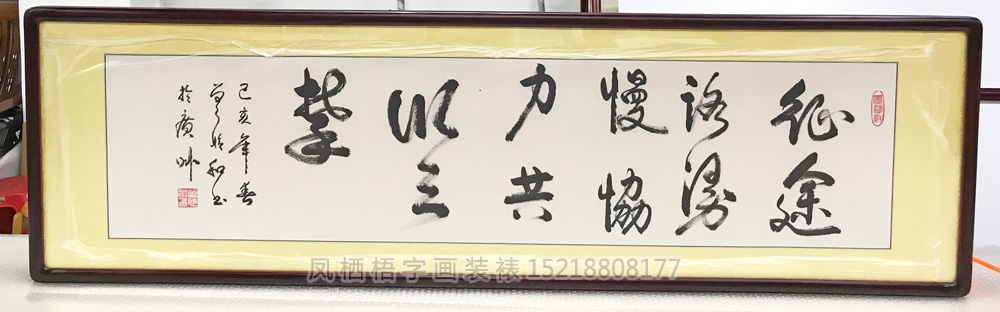 征途
路漫
慢協
力共
三
擎
己亥年春
書
於廣州
凤栖梧字画装裱15218808177